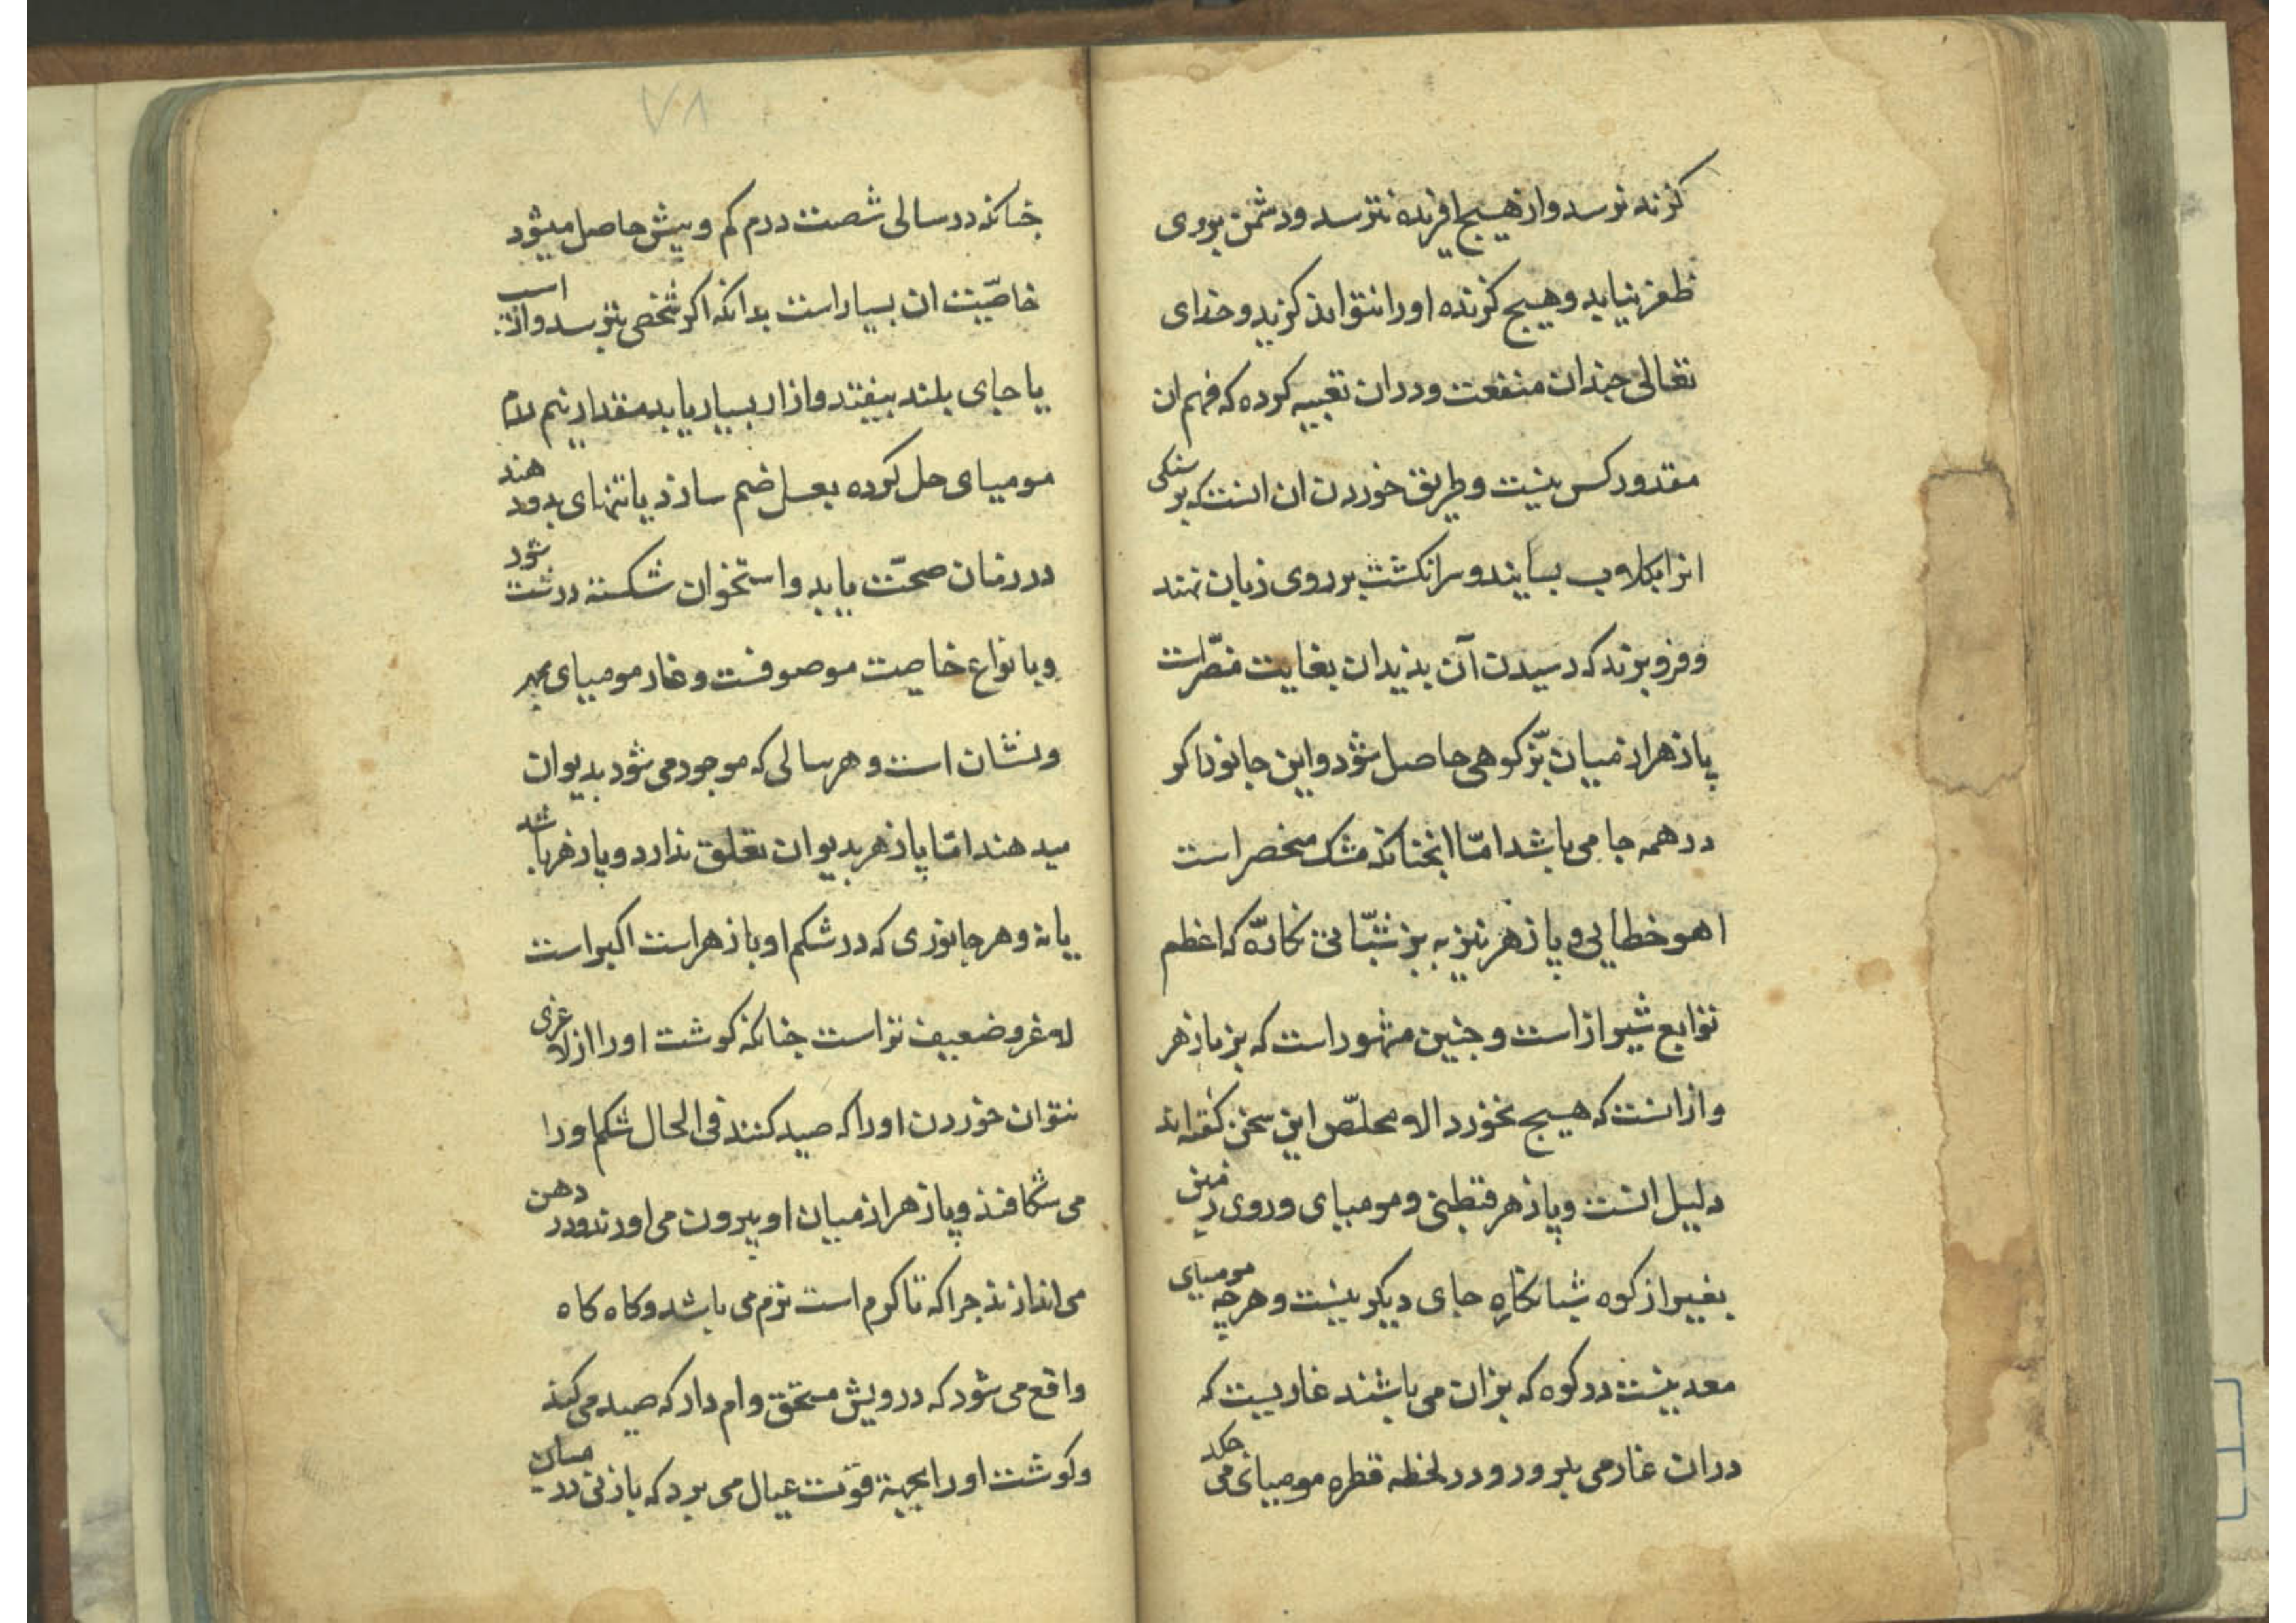 کزند نرسد و از هیچ افریده نترسد و دشمن بروی
ظفر نیابد و هیچ کزنده او را نتواند کزید و خدای
تعالی چندان منفعت و دران تعبیه کرده که فهم ان
مقدور کس نیست و طریق خوردن ان انست که بر سنکی
انرا بکلاب بسایند و سر انکشت بر روی زبان نهند
و فرو برند که رسیدن آن بدندان بغایت مضر است
پازهر از میان بز کوهی حاصل شود و این جانور اکر
در همه جا می باشد امّا انچنانکه مشک منحصر است
اهو خطایی و پازهر نیز به بز شبانکاره که اعظم
توابع شیراز است و چنین مشهور است که بز پازهر
و ازانست که هیچ نخورد الا مخلّص این سخن کفته اند
دلیل انست و پازهر قطبی و مومیای و روی زمین
بغیر از کوه شبانکاره جای دیکر نیست و هرچه مومیای
معدنیست در کوه که بزان می باشند غاریست که
دران غار می پرورد و در لحظه قطره مومیای می چکد
۷۸
چنانکه در سالی شصت درم کم و بیش حاصل میشود
خاصّیت ان بسیار است بدانکه اکر شخصی بترسد و از اسب
یا جای بلند بیفتد و ازار بسیار یابد مقدار نیم درم
مومیای حل کرده بعسل ضم سازند یا تنهای بدو دهند
در زمان صحّت یابد و استخوان شکسته درست شود
و بانواع خاصیت موصوفست و غار مومیای بمهر
و نشان است و هر سالی که موجود می شود بدیوان
میدهند امّا پازهر بدیوان تعلق ندارد و پازهر باشد
یا نه و هر جانوری که در شکم او پازهر است اکبر است
لاغر و ضعیف تر است چنانکه کوشت او را از لاغری
نتوان خوردن او را که صید کنند فی الحال شکم او را
می شکافند و پازهر از میان او بیرون می اورند و در دهن
می اندازند چرا که تا کرم است نرم می باشد و کاه کاه
واقع می شود که درویش مستحق وام دار که صید می کند
و کوشت او را بجهة قوت عیال می برد که پازنی در میان